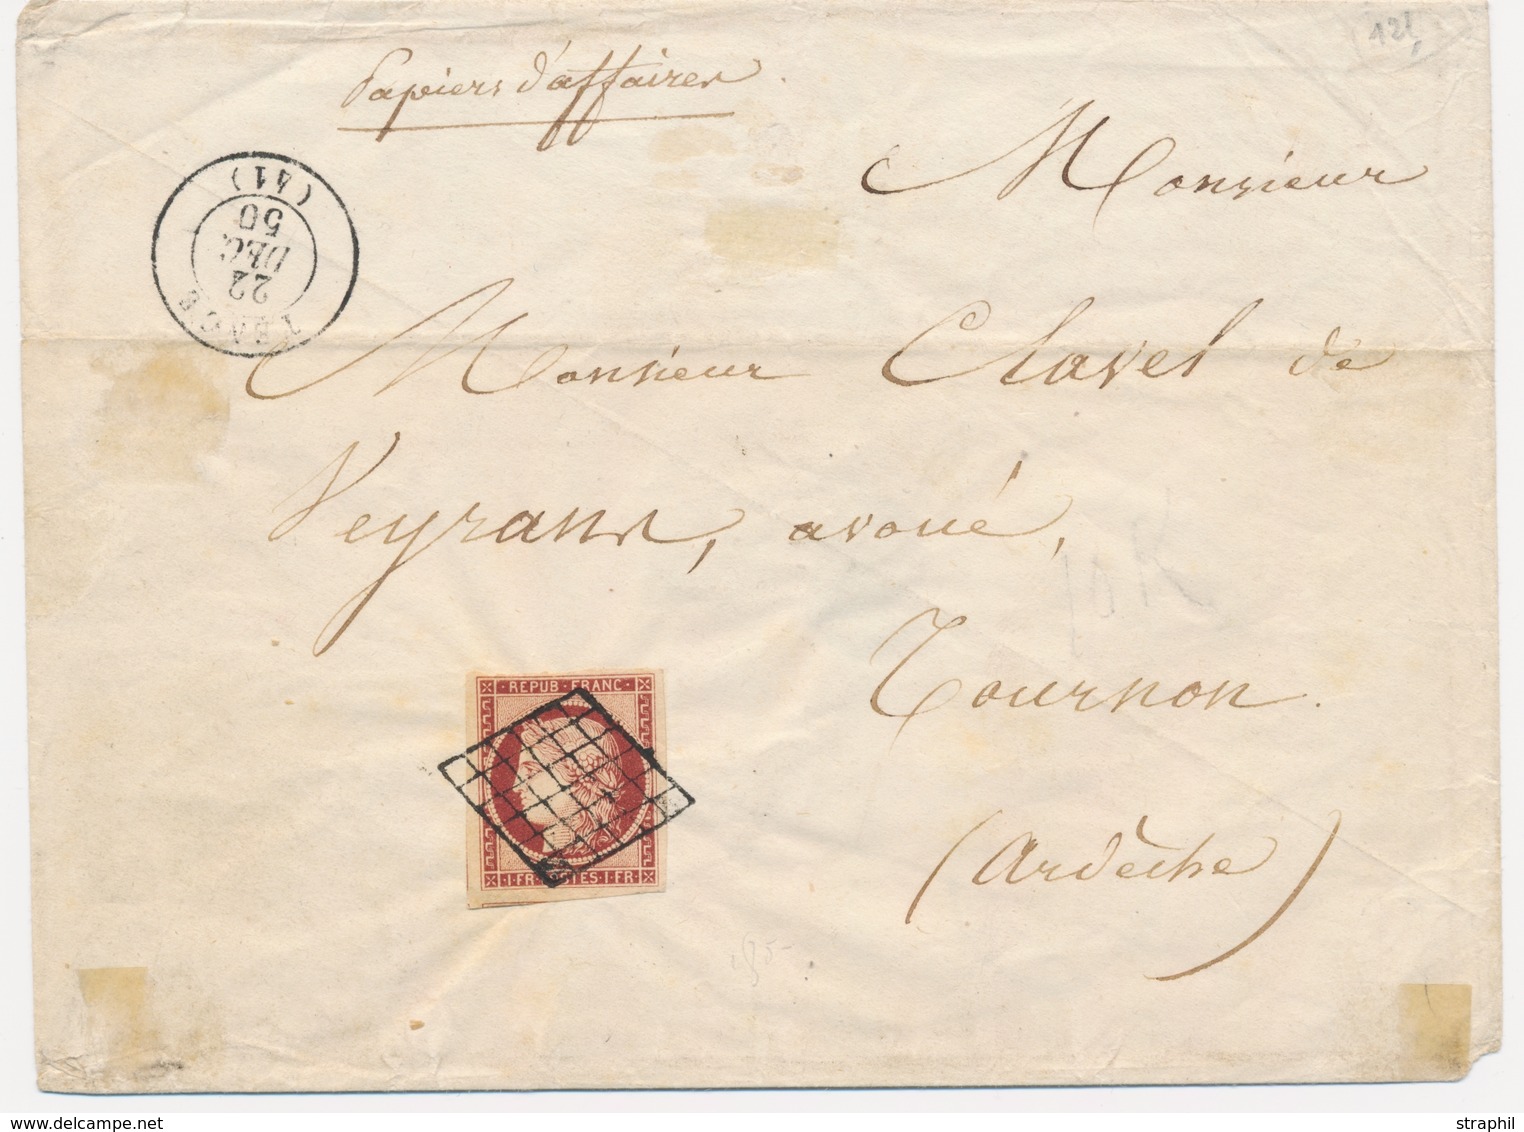 Papiers d'affaires
121
Monsieur
(41)
22
DEC.
50
Monsieur Clavel de
Veyrans, avoué,
Tournon.
(Ardèche)
REPUB FRANC
1 FR POSTES 1 FR
www.delcampe.net
straphil